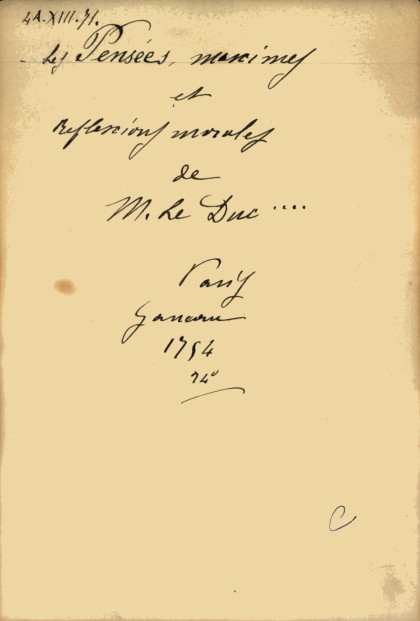 4A.XIII.71.
Les Pensées, maximes
et
Reflexions morales
de
M. Le Duc ....
Paris
Ganeau
1754
C